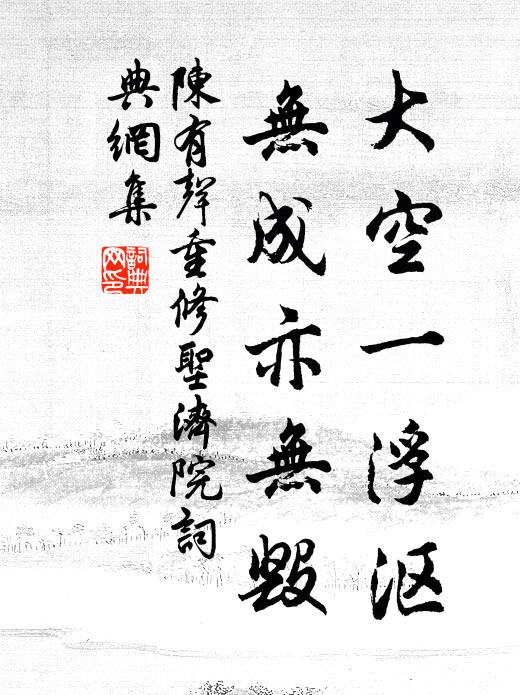 大空一浮沤
無成亦無毀
陳有聲重修聖濟院詞
典網集
詞典
网印